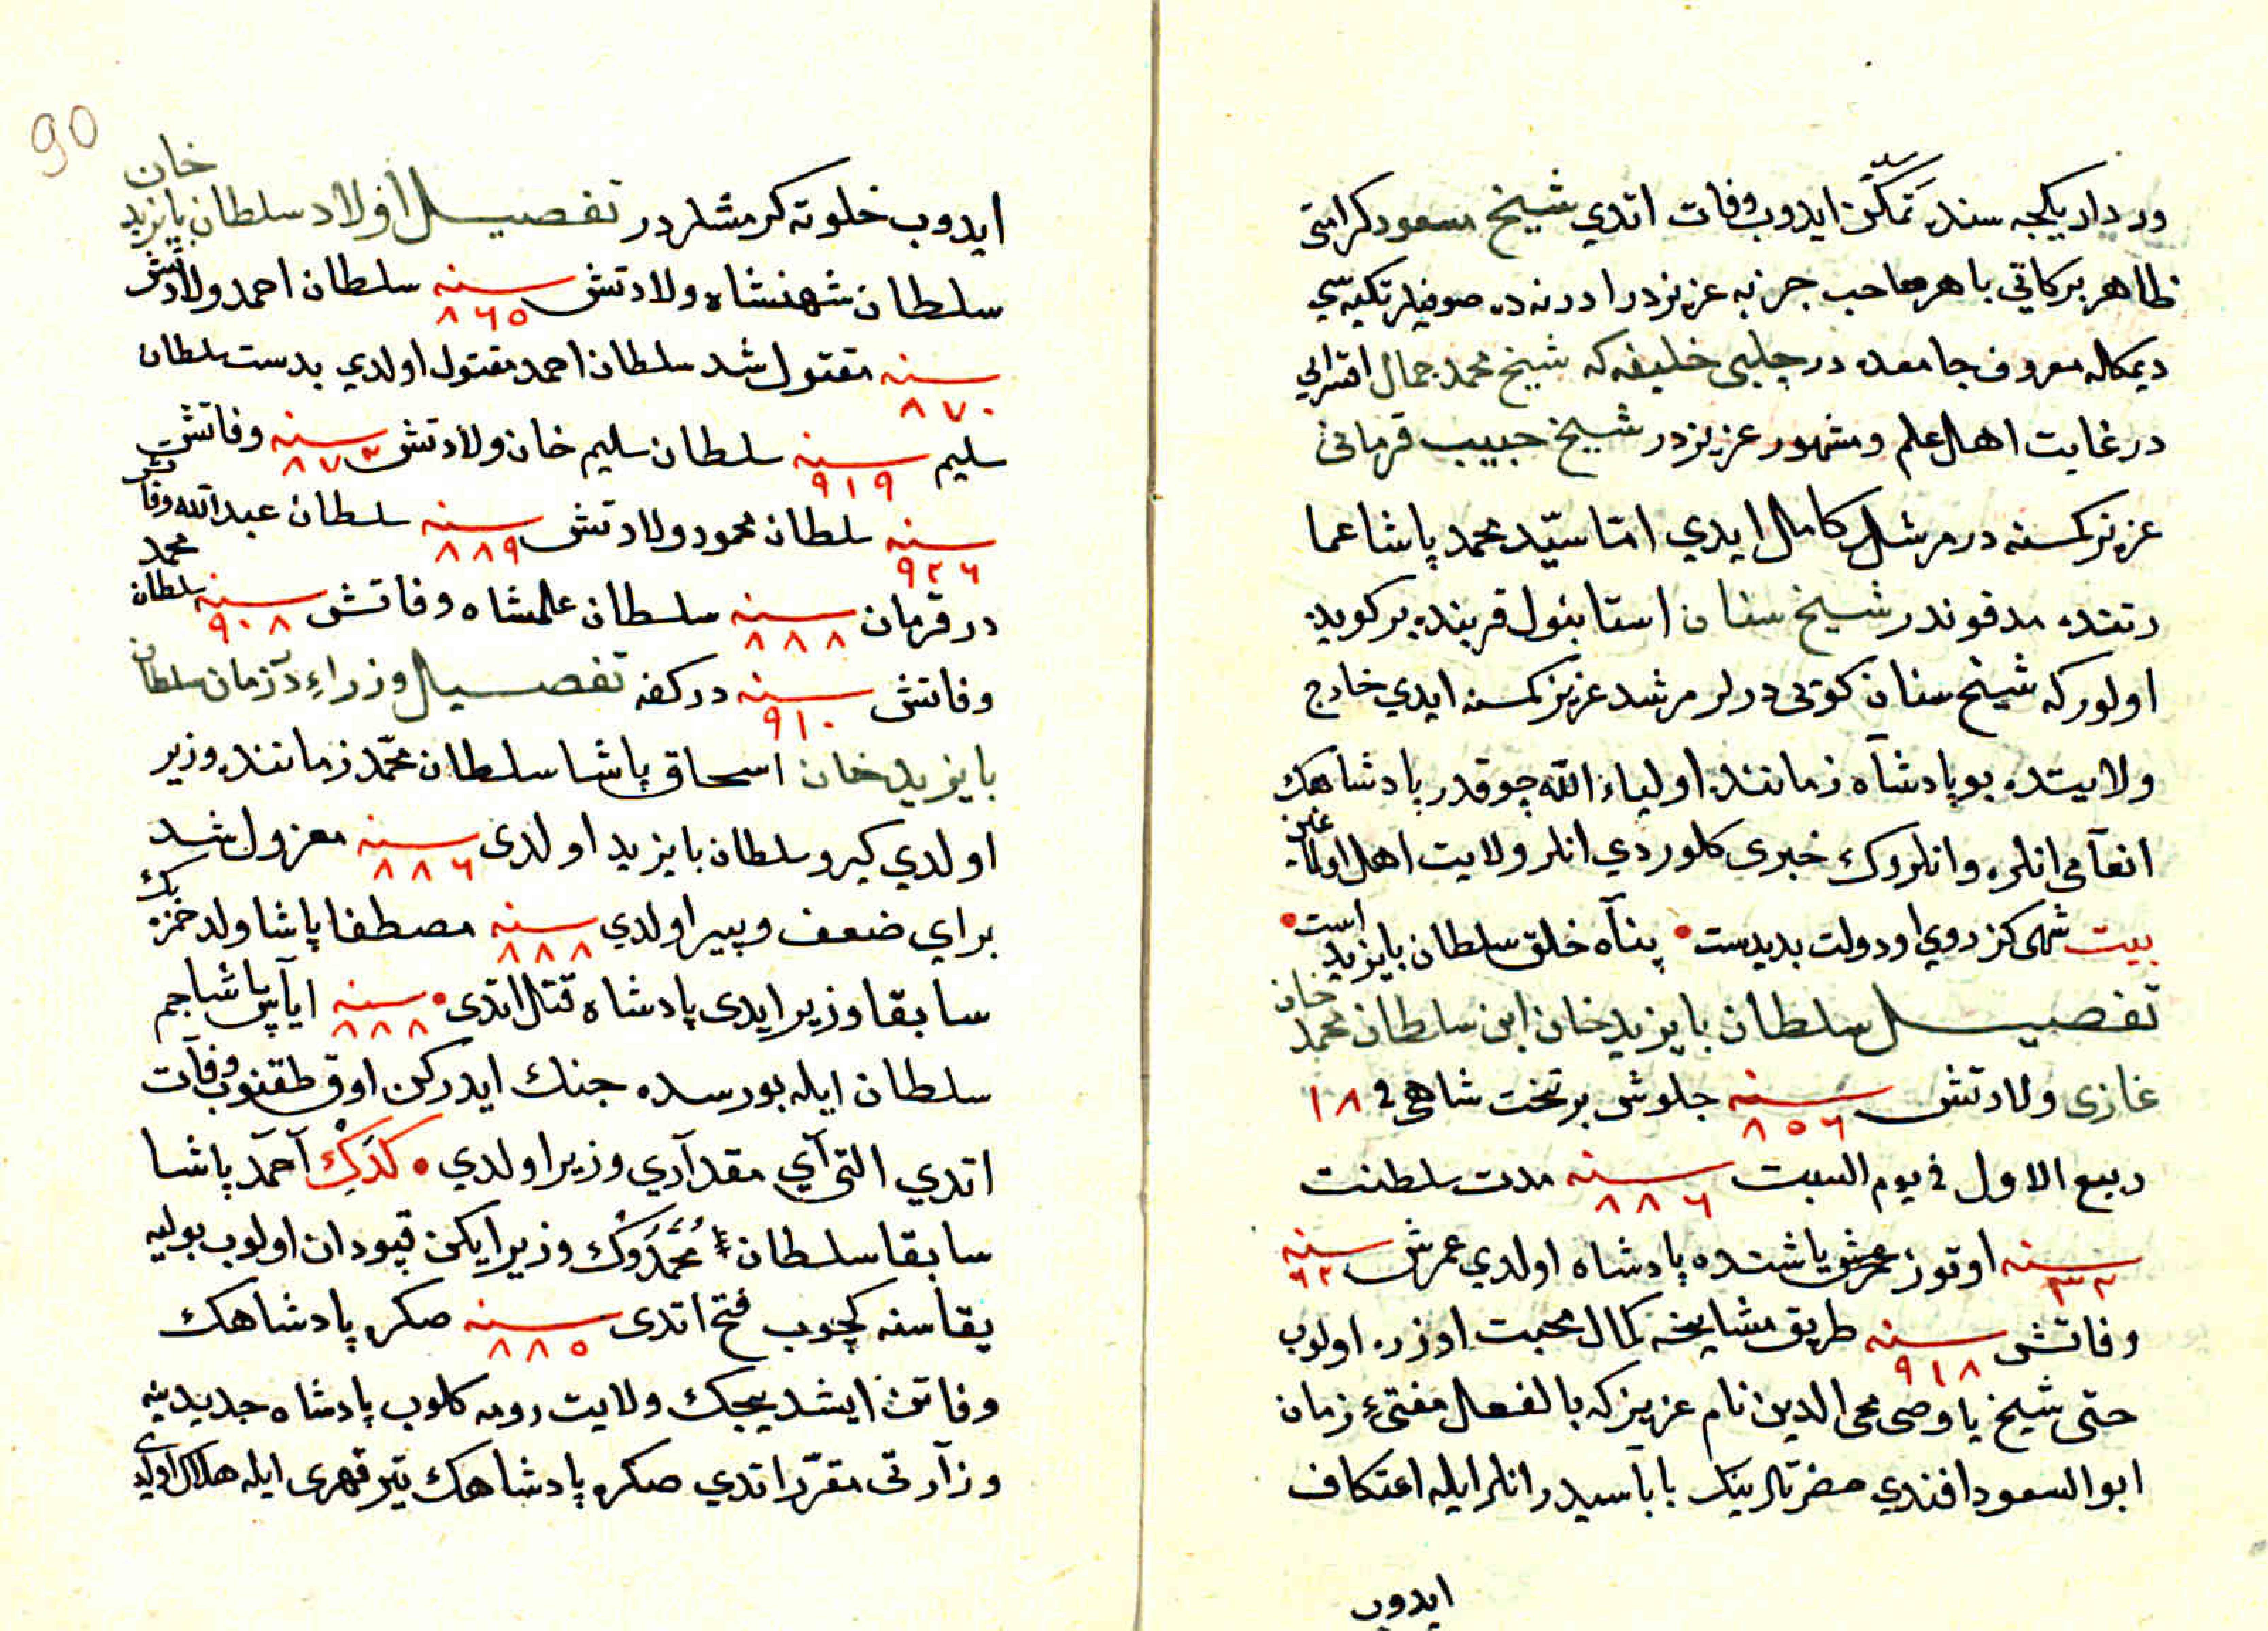 ورداد يكيجه سنده تمكّن ايدوب وفات اتدي شيخ مسعود كرامتى
ظاهر بركاتي باهر صاحب جزبه عزيزدر ادرنه ده صوفيلر تكيه سي
ديمكله معروف جامعده در چلبى خليفه كه شيخ محمد جمال اقسرايى
در غايت اهل علم ومشهور عزيزدر شيخ حبيب قرمانى
عزيز كمسنه در مرشد كامل ايدي امّا سيّد محمد پاشا عما
رتنده مدفوندر شيخ سنان استانبول قربنده بر كويده
اولور كه شيخ سنان كويى ديرلر مرشد عزيز كمسنه ايدي خارج
ولايتده بو پادشاه زماننده اولياء الله چوقدر پادشاهك
انعامى انلره وانلروك خبرى كلوردي انلر ولايت اهل اولماغين
بيت شهى كز روي او دولت بديدست پناه خلق سلطان بايزيد است
تفصيل سلطان بايزيد خان ابن سلطان محمد خان
غازى ولادتش سنه ٨٥٦ جلوش بر تخت شاهى فى ١٨
ربيع الاول فى يوم السبت سنه ٨٨٦ مدت سلطنت
سنه ٣٢ اوتوز ياشنده پادشاه اولدي عمرش سنه ٦٢
وفاتش سنه ٩١٨ طريق مشايخه كمال محبت اوزره اولوب
حتى شيخ ياوصى محى الدين نام عزيز كه بالفعل مفتىء زمان
ابو السعود افندي حضرتلرينك باباسيدر انلر ايله اعتكاف
ايدوب
90
ايدوب خلوته كرمشلردر تفصيل اولاد سلطان بايزيد خان
سلطان شهنشاه ولادتش سنه ٨٦٥ سلطان احمد ولادتش
سنه ٨٧٠ مقتول شد سلطان احمد مقتول اولدي بدست سلطان
سليم سنه ٩١٩ سلطان سليم خان ولادتش سنه ٨٧٢ وفاتش
سنه ٩٢٦ سلطان محمود ولادتش سنه ٨٨٩ سلطان عبد الله وفاتش
در قرمان سنه ٨٨٨ سلطان علمشاه وفاتش سنه ٩٠٨ سلطان محمد
وفاتش سنه ٩١٠ در كفه تفصيل وزراء در زمان سلطان
بايزيد خان اسحاق پاشا سلطان محمّد زماننده وزير
اولدي كيرو سلطان بايزيد اولدى سنه ٨٨٦ معزول شد
براي ضعف وپير اولدي سنه ٨٨٨ مصطفا پاشا ولد حمزه بك
سابقا وزير ايدى پادشاه قتل اتدى سنه ٨٨٨ اياس پاشا جم
سلطان ايله بورسده جنك ايدركن اوق طقنوب وفات
اتدي التى آي مقدآري وزير اولدي كدك احمد پاشا
سابقا سلطان محمّدوك وزير ايكن قپودان اولوب بوليه
يقاسنه كچوب فتح اتدى سنه ٨٨٥ صكره پادشاهك
وفاتن ايشديجك ولايت رومه كلوب پادشاه جديد ينه
وزارتى مقرّر اتدي صكره پادشاهك تير قهرى ايله هلاك اولدي